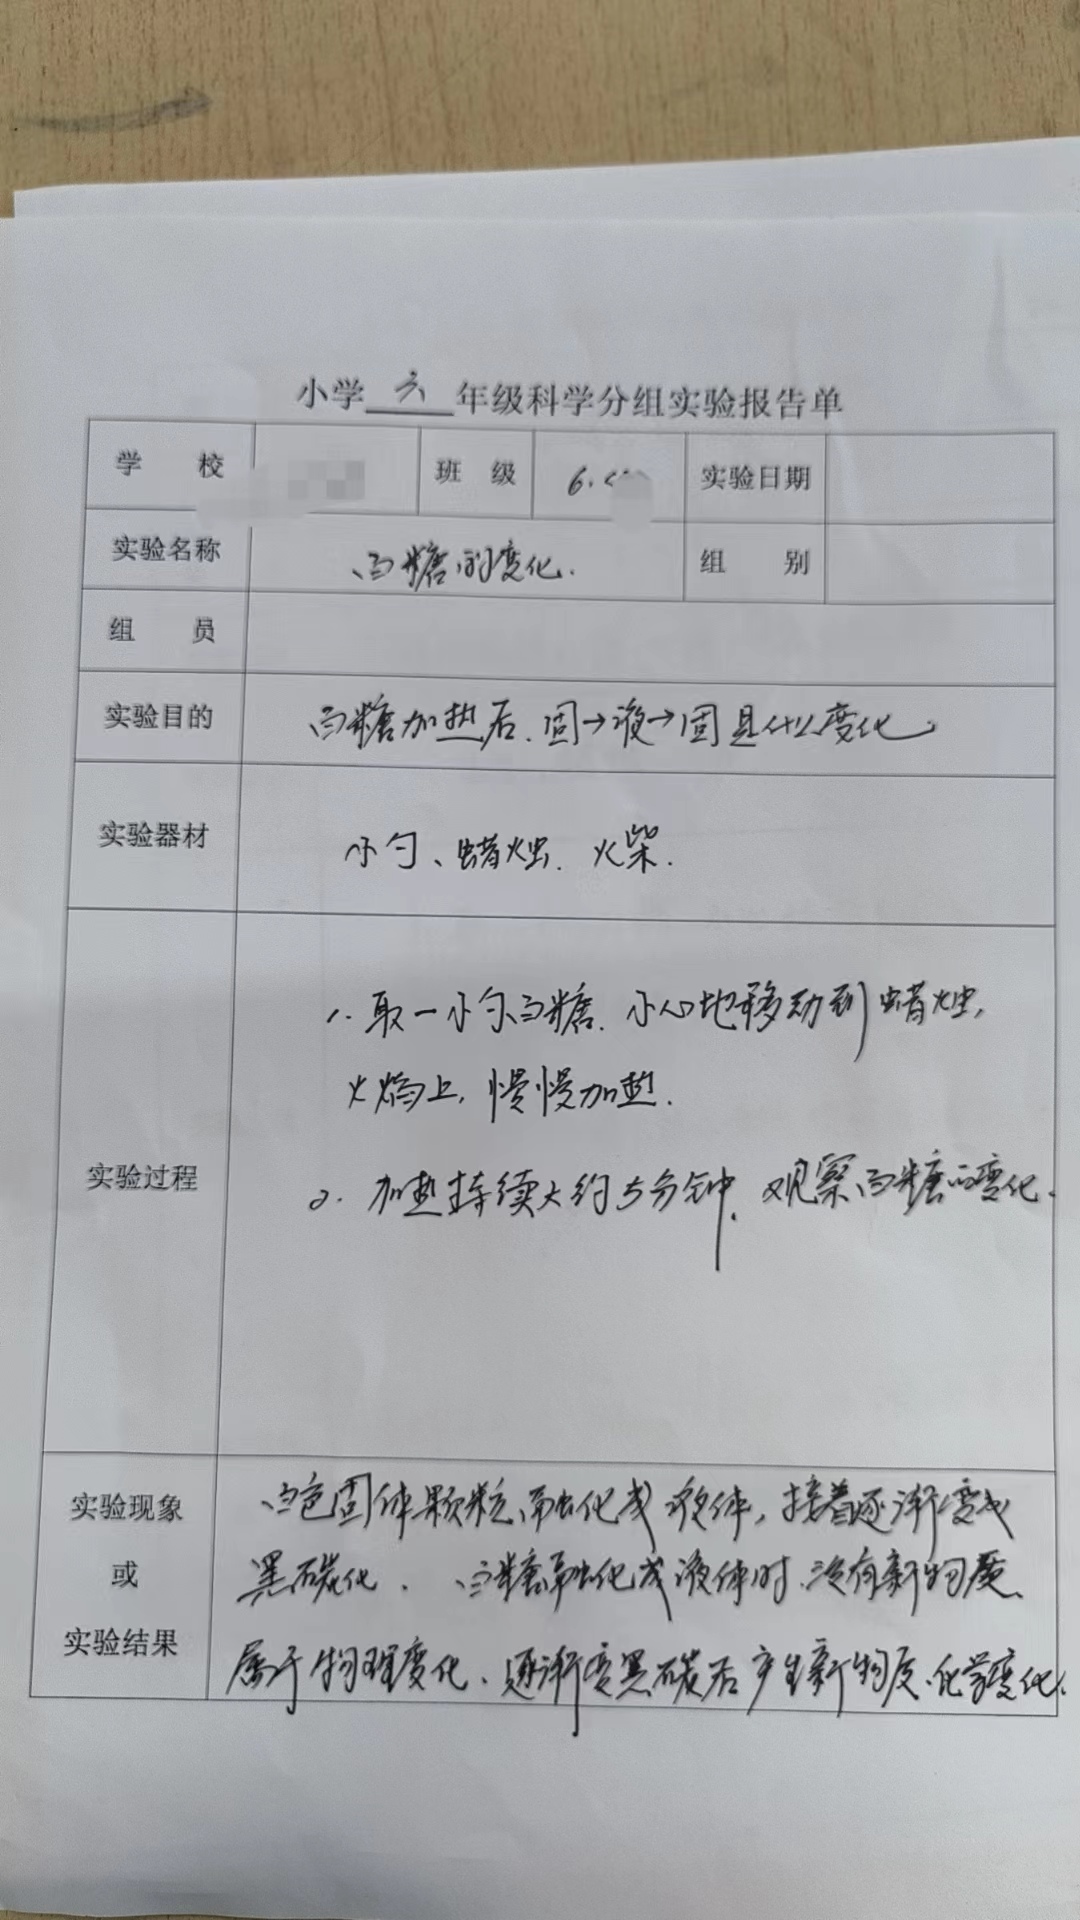 小学 六 年级科学分组实验报告单
学 校
班 级 6.
实验日期
实验名称 白糖的变化.
组 别
组 员
实验目的 白糖加热后、固→液→固是什么变化
实验器材 小勺、蜡烛、火柴.
实验过程
1. 取一小勺白糖、小心地移动到蜡烛,
火焰上, 慢慢加热.
2. 加热持续大约5分钟、观察白糖的变化.
实验现象
或
实验结果
白色固体颗粒融化成液体, 接着逐渐变成
黑碳化. 白糖融化成液体时、没有新物质、
属于物理变化、逐渐变黑碳后产生新物质、化学变化.